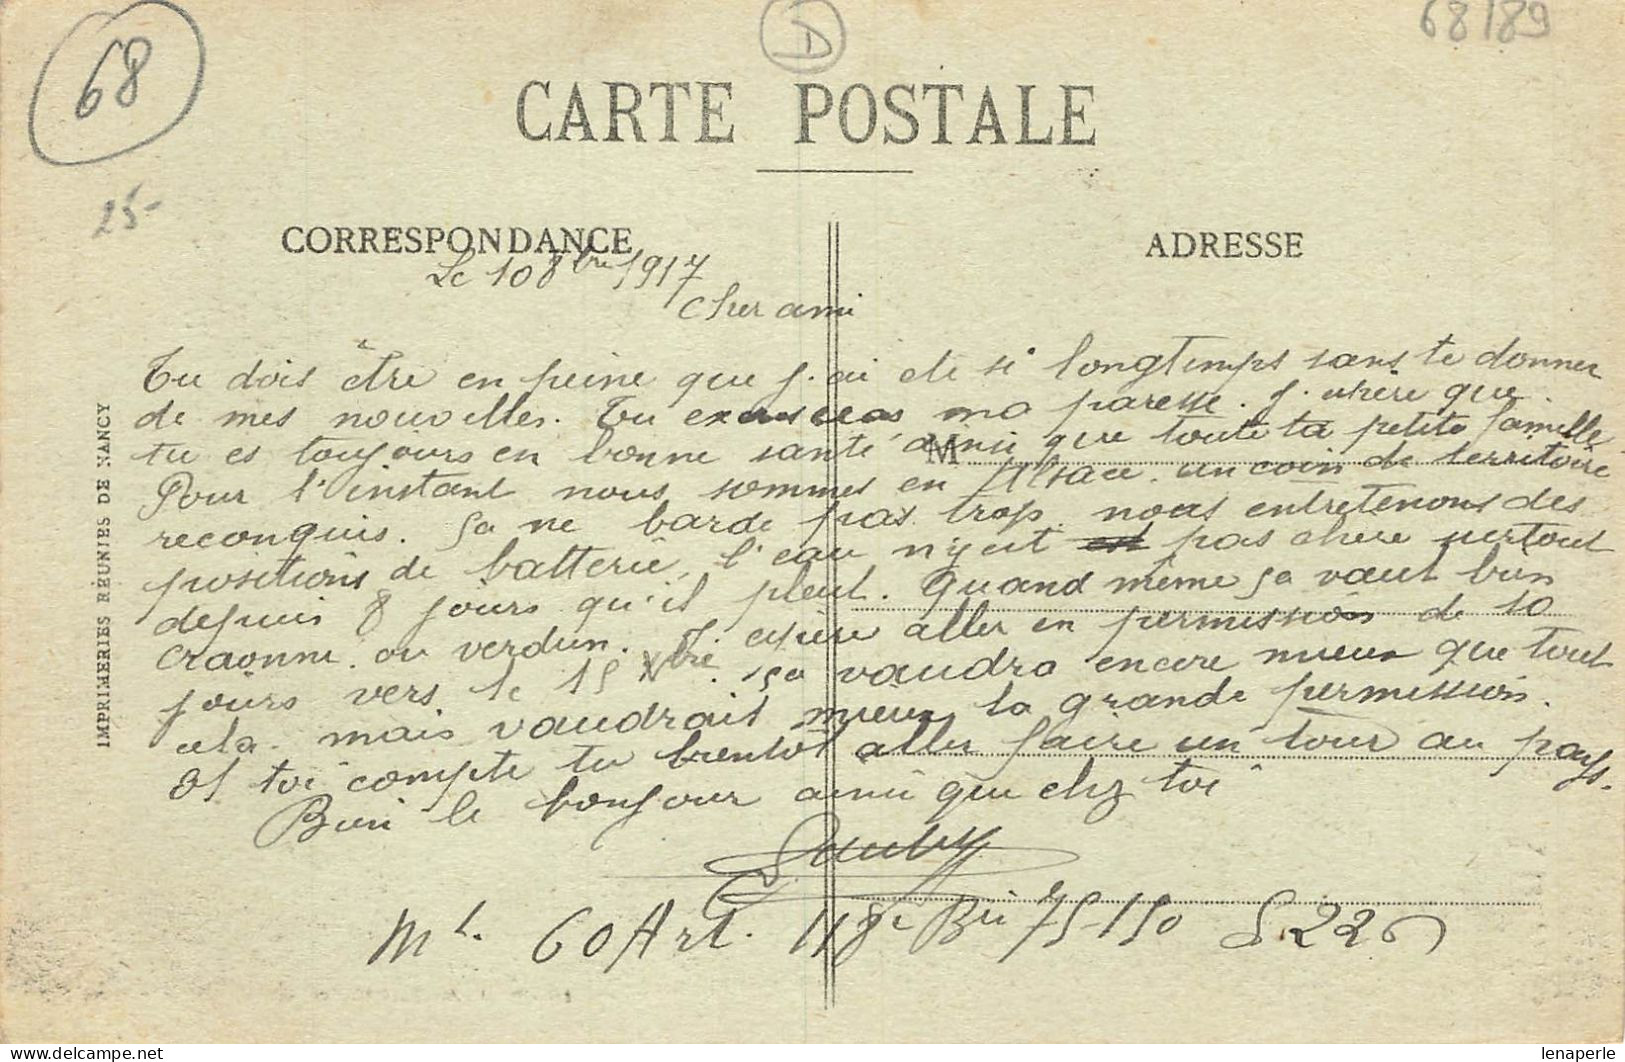 68
D
68189
25-
CARTE POSTALE
CORRESPONDANCE
ADRESSE
Le 10 8bre 1917
Cher ami
Tu dois être en peine que j'ai ete si longtemps sans te donner
de mes nouvelles. Tu excuseras ma paresse. J'espère que
tu es toujours en bonne santé ainsi que toute ta petite famille
M
Pour l'instant nous sommes en Alsace. un coin de territoire
reconquis. Sa ne barde pas trop. nous entretenons des
positions de batterie, l'eau n'y est pas chere surtout
depuis 8 jours qu'il pleut. Quand même sa vaut bien
Craonne ou verdun. J'espère aller en permission de 10
jours vers le 15 Xbre. sa vaudra encore mieux que tout
cela. mais vaudrait mieux la grande permission.
Et toi compte tu bientôt aller faire un tour au pays.
Bien le bonjour ainsi que chez toi
60 Art. 118e Bie 75-150 S. 226
IMPRIMERIES REUNIES DE NANCY
lenaperle